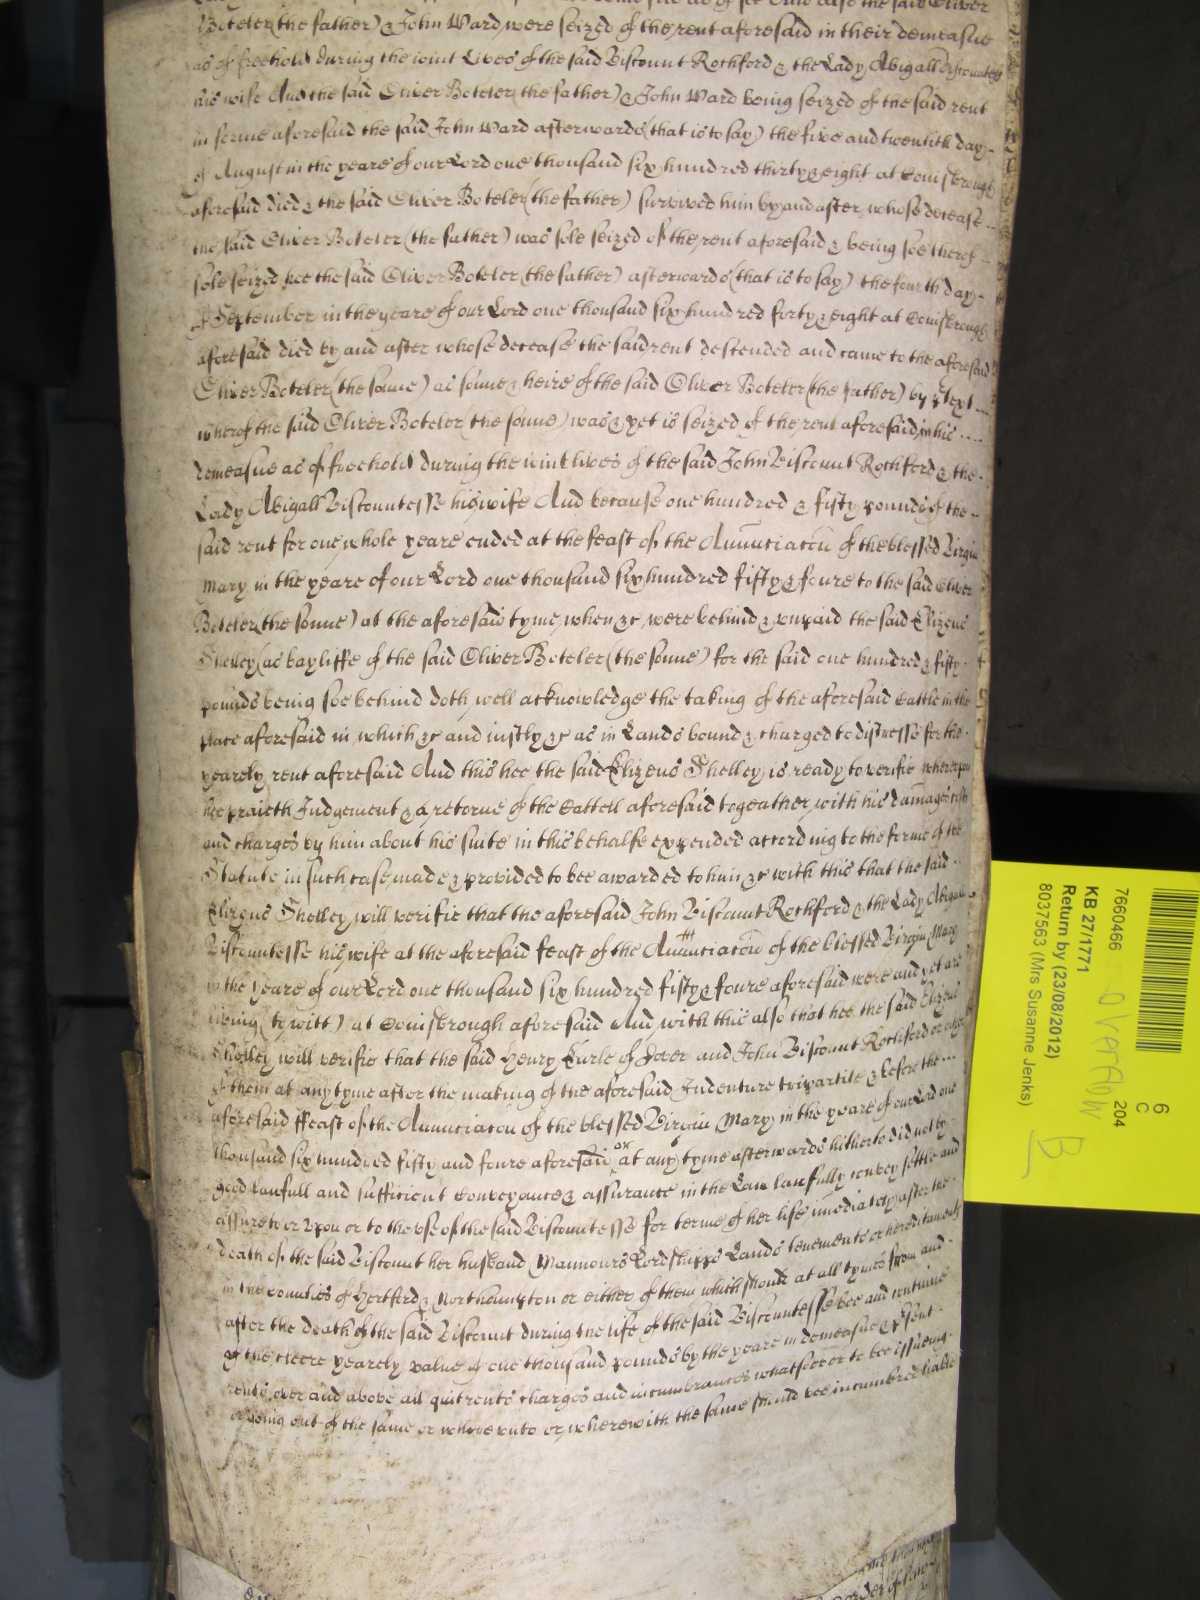 said Oliver
Boteler (the father) & John Ward, were seized of the rent aforesaid in their demeasne
as of freehold during the ioint Lives of the said Viscount Rochford & the Lady Abigall Viscountess
his wife And the said Oliver Boteler (the father) & John Ward being seized of the said rent
in forme aforesaid the said John Ward afterwards (that is to say) the five and twentith day
of August in the yeare of our Lord one thousand six hundred thirty & eight at Conisbrough
aforesaid died & the said Oliver Boteler (the father) survived him by and after whose decease
the said Oliver Boteler (the father) was sole seized of the rent aforesaid & being soe thereof
sole seized hee the said Oliver Boteler (the father) afterwards (that is to say) the fourth day
of September in the yeare of our Lord one thousand six hundred forty & eight at Conisbrough
aforesaid died by and after whose decease the said rent descended and came to the aforesaid
Oliver Boteler (the sonne) as sonne & heire of the said Oliver Boteler (the father) by ptext
wherof the said Oliver Boteler (the sonne) was & yet is seized of the rent aforesaid in his
demeasne as of freehold during the ioint lives of the said John Viscount Rochford & the
Lady Abigall Viscountesse his wife And because one hundred & fifty pounds of the
said rent for one whole yeare ended at the feast of the Annunciacon of the blessed Virgin
Mary in the yeare of our Lord one thousand six hundred fifty & foure to the said Oliver
Boteler (the sonne) at the aforesaid tyme when &c were behind & unpaid the said Elizeus
Shelley (as bayliffe of the said Oliver Boteler (the sonne) for the said one hundred & fifty
pounds being soe behind doth well acknowledge the taking of the aforesaid Cattle in the
place aforesaid in which &c and iustly &c as in Lands bound & charged to distresse for the
yearely rent aforesaid And this hee the said Elizeus Shelley is ready to verifie whereupon
hee praieth Iudgement & a retorne of the Cattell aforesaid togeather with his damages costs
and charges by him about his suite in this behalfe expended according to the forme of the
Statute in such case made & provided to bee awarded to him &c with this that the said
Elizeus Shelley will verifie that the aforesaid John Viscount Rochford & the Lady Abigall
Viscountesse his wife at the aforesaid feast of the Annunciacon of the blessed Virgin Mary
in the yeare of our Lord one thousand six hundred fifty & foure aforesaid were and yet are
living (to witt) at Conisbrough aforesaid And with this also that hee the said Elizeus
Shelley will verifie that the said Henry Earle of Dover and John Viscount Rochford or either
of them at any tyme after the making of the aforesaid Indenture tripartite & before the
aforesaid ffeast of the Annunciacon of the blessed Virgin Mary in the yeare of our Lord one
thousand six hundred fifty and foure aforesaid or at any tyme afterwards hitherto did not by
good lawfull and sufficient Conveyance & assurance in the Law lawfully convey settle and
assure to or vpon or to the vse of the said Viscountesse for terme of her life imediately after the
death of the said Viscount her husband Mannours Lordshipps Lands tenements or hereditaments
in the counties of Hertford & Northampton or either of them which should at all tymes from and
after the death of the said Viscount during the life of the said Viscountesse bee and continue
of the cleere yearely value of one thousand pounds by the yeare in demeasne & psent
rents over and above all quitrents charges and incumbrances whatsoever to bee issueing
or going out of the same or wherevnto or wherewith the same should bee incumbred liable
7660466
204
6
C
KB 27/1771
Return by (23/08/2012)
8037563 (Mrs Susanne Jenks)
B